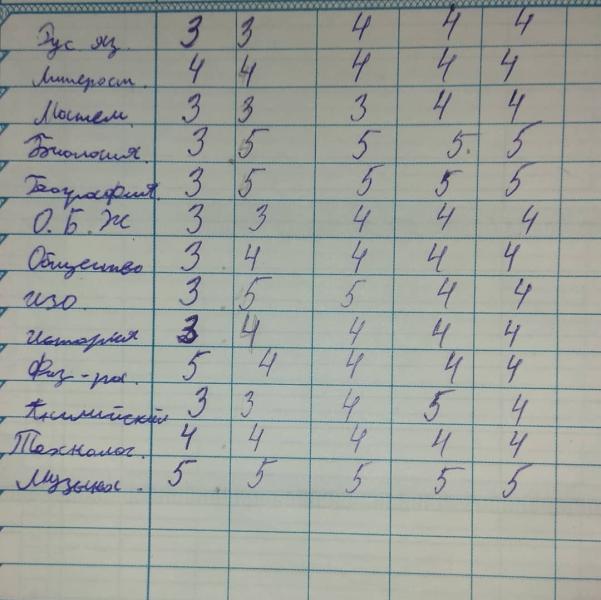 Рус яз. 3 3 4 4 4
Литерат. 4 4 4 4 4
Матем. 3 3 3 4 4
Биология. 3 5 5 5. 5
География. 3 5 5 5 5
О.Б.Ж 3 3 4 4 4
Общество 3 4 4 4 4
ИЗО. 3 5 5 4 4
история 3 4 4 4 4
Физ-ра. 5 4 4 4 4
Английский 3 3 4 5 4
Технолог. 4 4 4 4 4
Музыка. 5 5 5 5 5